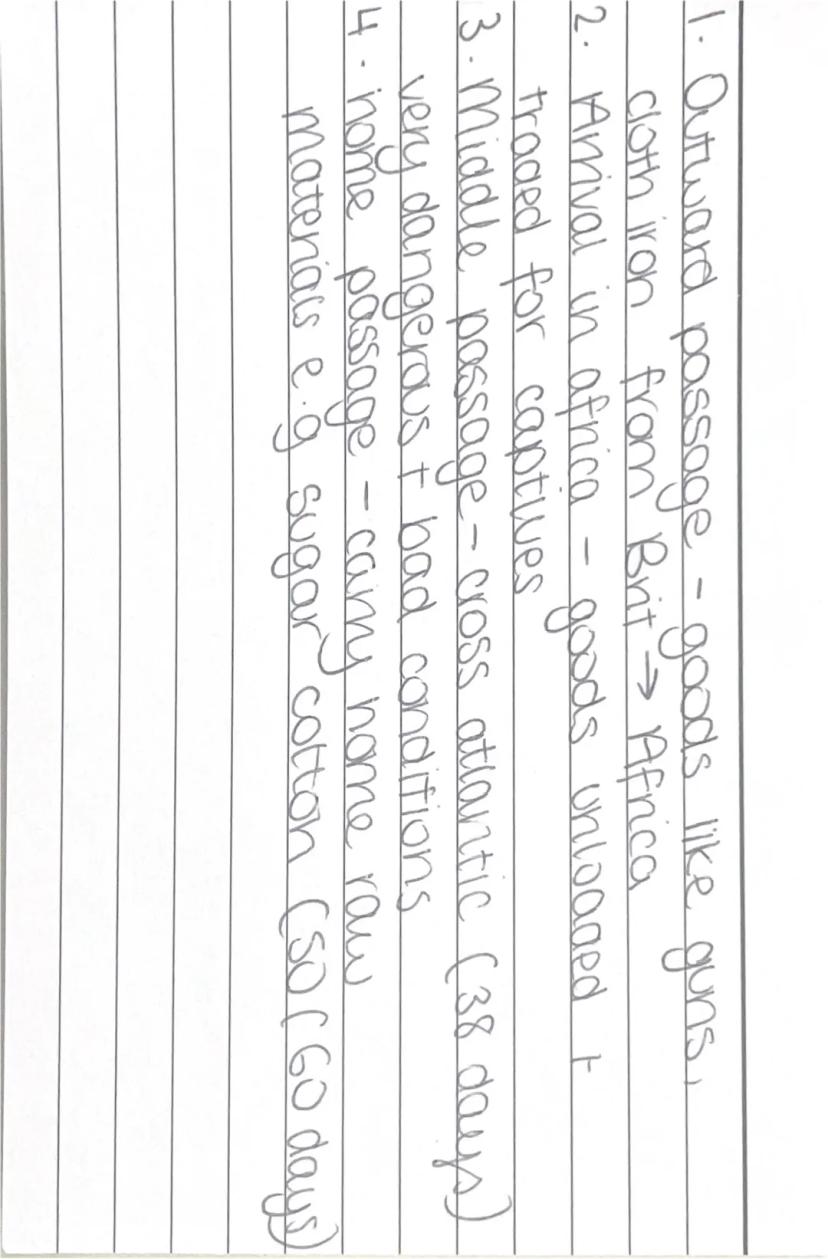 1. Outward passage - goods like guns,
cloth iron from Brit → Africa
2. Arrival in africa - goods unloaded +
traded for captives
3. Middle passage - cross atlantic (38 days)
very dangerous + bad conditions
4. home passage - carry home raw
materials e.g sugar cotton (50(60 days)